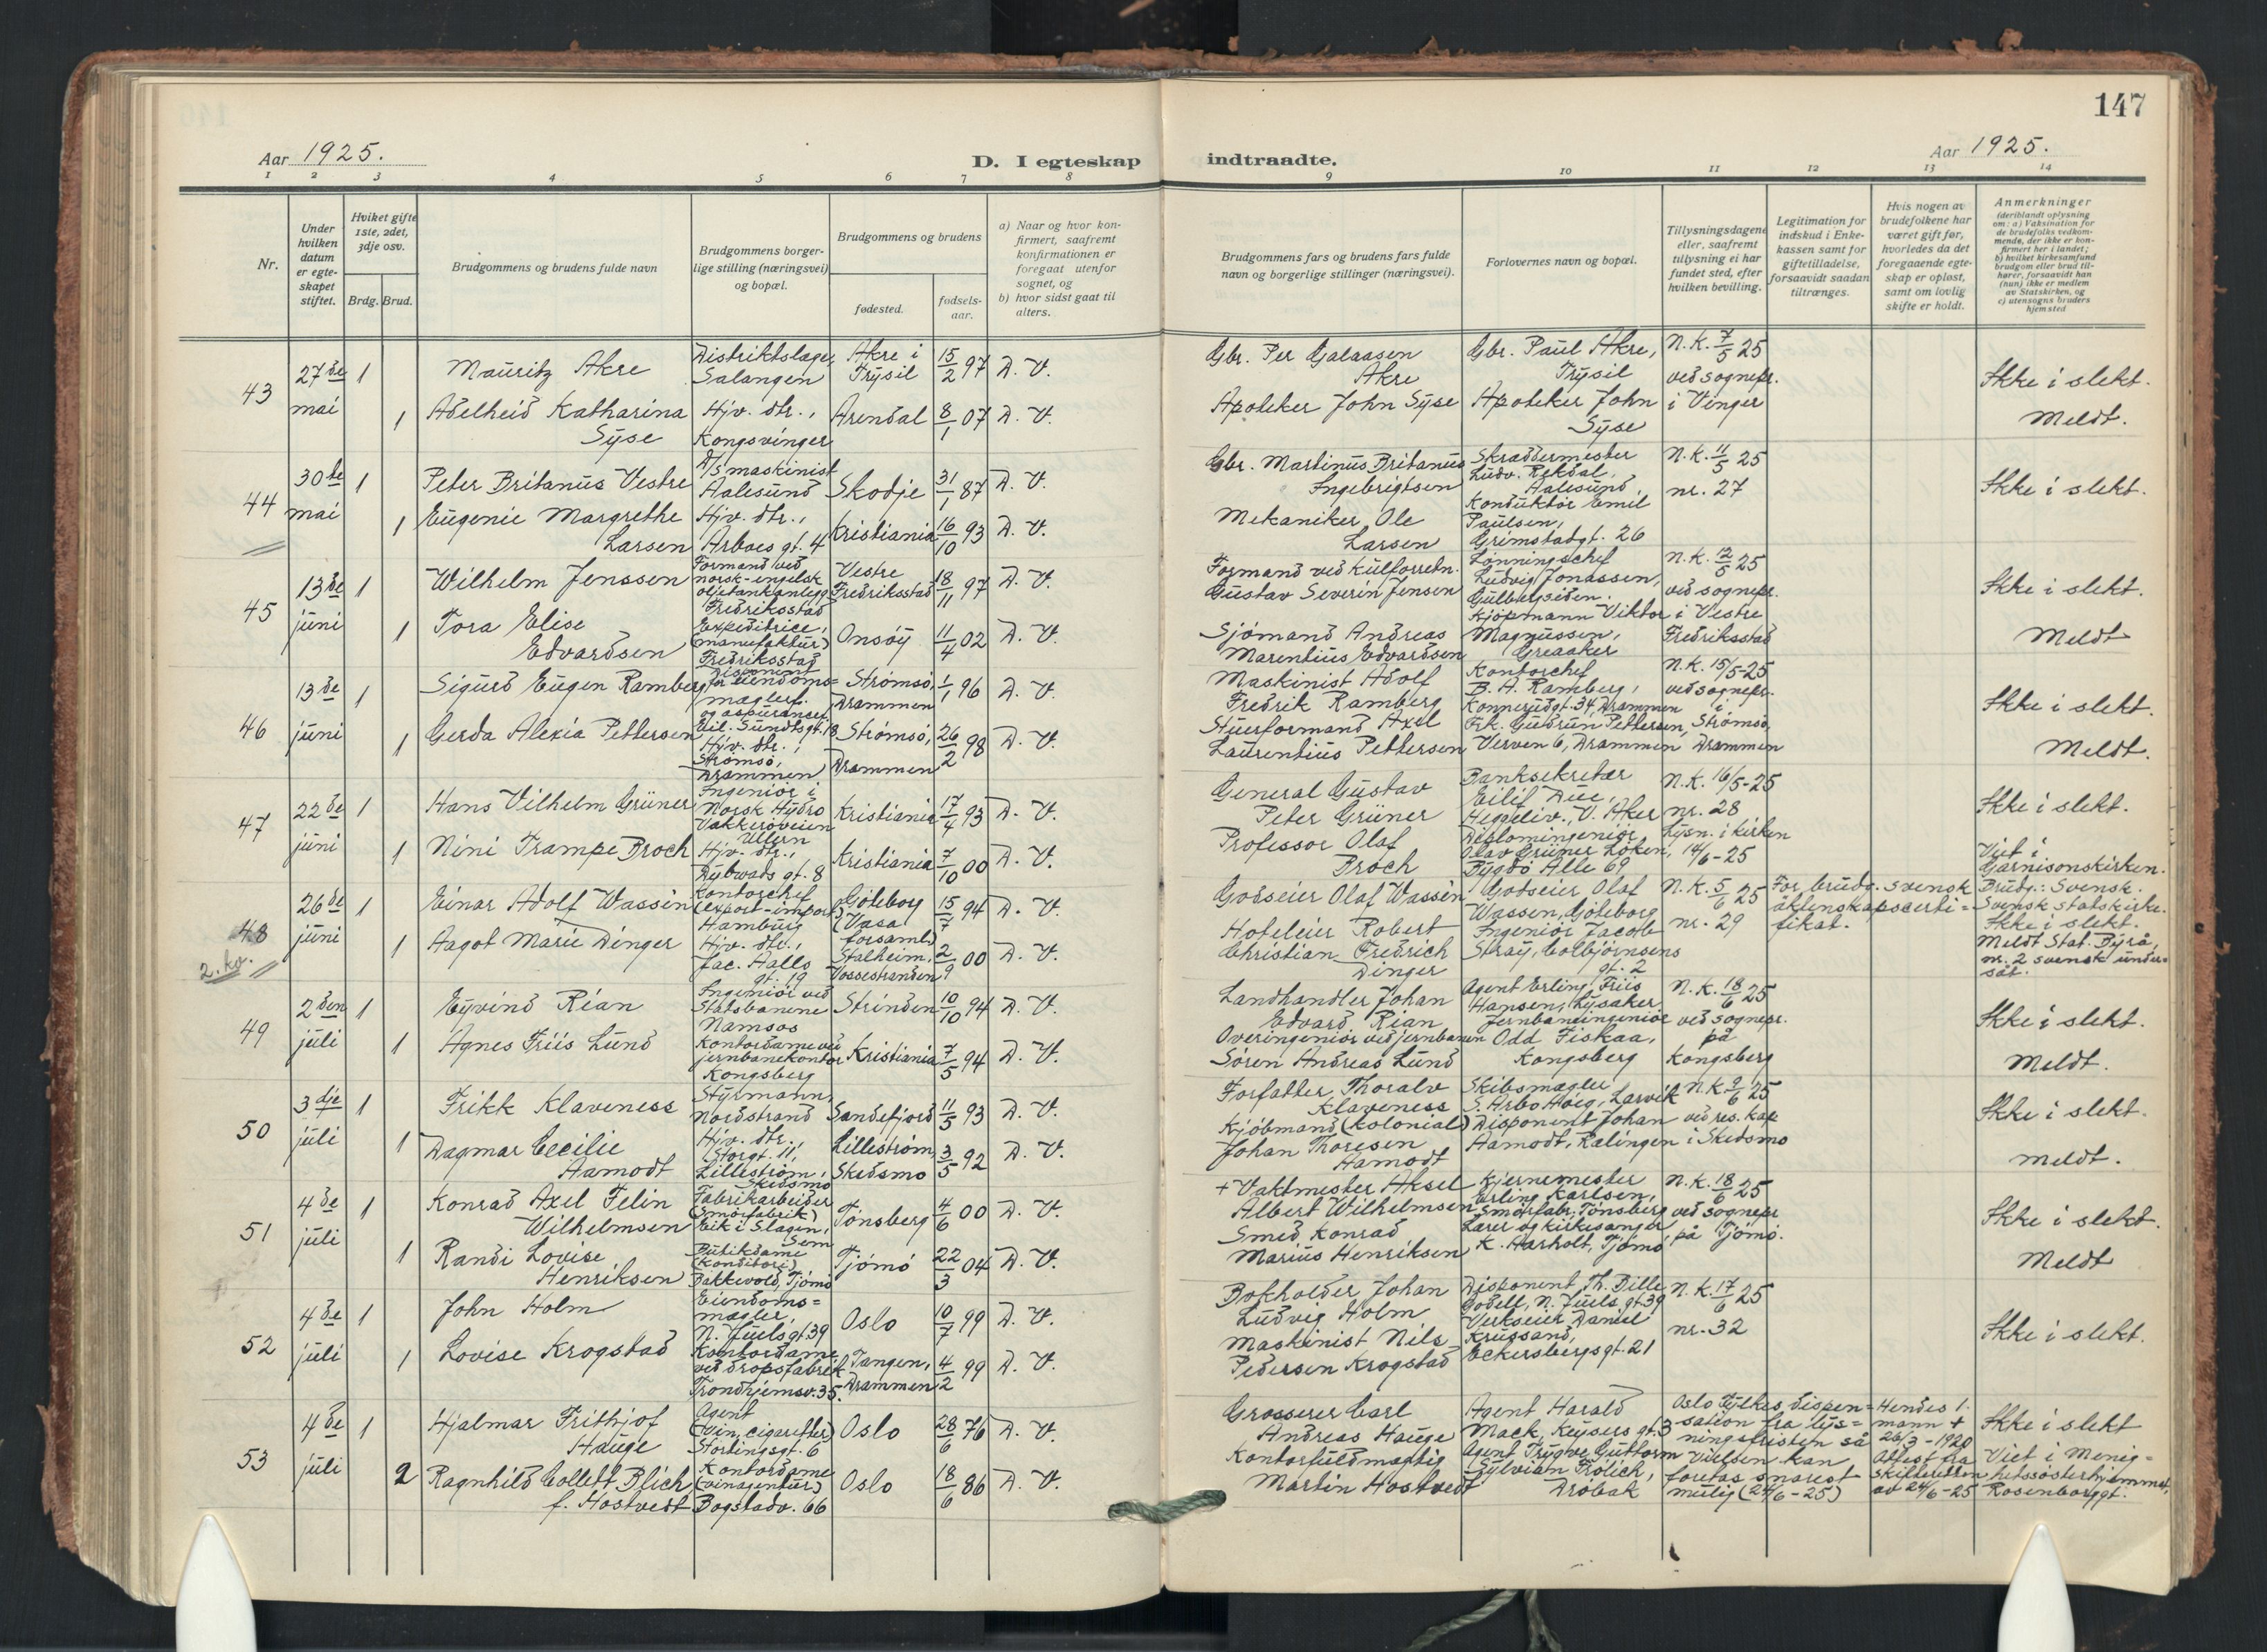 147
Aar 1925.
D. I egteskap indtraadte.
Aar 1925.
1 2 3 4 5 6 7 8 9 10 11 12 13 14
Nr.
Under hvilken datum er egte-skapet stiftet.
Hviket gifte 1ste, 2det, 3dje osv.
Brdg. Brud.
Brudgommens og brudens fulde navn
Brudgommens borger-lige stilling (næringsvei) og bopæl.
Brudgommens og brudens
fødested.
fødsels-aar.
a) Naar og hvor kon-firmert, saafremt konfirmationen er foregaat utenfor sognet, og
b) hvor sidst gaat til alters.
Brudgommens fars og brudens fars fulde navn og borgerlige stillinger (næringsvei).
Forlovernes navn og bopæl.
Tillysningsdagene eller, saafremt tillysning ei har fundet sted, efter hvilken bevilling.
Legitimation for indskud i Enke-kassen samt for giftetilladelse, forsaavidt saadan tiltrænges.
Hvis nogen av brudefolkene har været gift før, hvorledes da det foregaaende egte-skap er opløst, samt om lovlig skifte er holdt.
Anmerkninger
(deriblandt oplysning om: a) Vaksination for de brudefolks vedkom-mende, der ikke er kon-firmert her i landet; b) hvilket kirkesamfund brudgom eller brud til-hører, forsaavidt han (hun) ikke er medlem av Statskirken, og c) utensogns bruders hjemsted
43 27de mai 1 Mauritz Akre Distriktslæge, Salangen Akre i Trysil 15/2 97 D. V. Gbr. Per Galaasen Akre Gbr. Paul Akre, Trysil N.K. 7/5 25 ved sognepr. i Vinger Ikke i slekt.
1 Adelheid Katharina Syse Hjv. dtr., Kongsvinger Arendal 8/1 07 D. V. Apoteker John Syse Apoteker John Syse Meldt.
44 30te mai 1 Peter Britanus Vestre D/S maskinist Aalesund Skodje 31/1 87 D. V. Gbr. Martinus Britanus Ingebrigtsen Skræddermester Ludv. Rekdal, Aalesund N.K. 11/5 25 nr. 27 Ikke i slekt.
1 Eugenie Margrethe Larsen Hjv. dtr., Arboes gt. 4 Kristiania 16/10 93 D. V. Mekaniker Ole Larsen Konduktør Emil Paulsen, Grimstadgt. 26
45 13de juni 1 Wilhelm Jenssen Formand ved norsk-engelsk oljetankanlegg Fredriksstad Vestre Fredriksstad 18/11 97 D. V. Formand ved kulforretn. Gustav Severin Jensen Lønningschef Ludvig Jonassen, Gulbergsiden. N.K. 12/5 25 ved sognepr. i Vestre Fredriksstad Ikke i slekt.
1 Tora Elise Edvardsen Expeditrice, (manufaktur) Fredriksstad Onsøy 11/4 02 D. V. Sjømand Andreas Marentius Edvardsen Kjøpmann Viktor Magnussen, Greaaker Meldt
46 13de juni 1 Sigurd Eugen Ramberg Disponent for eiendoms=mæglerf. og assurancef. Eil. Sundtsgt. 18 Strømsø, Drammen 1/1 96 D. V. Maskinist Adolf Fredrik Ramberg Kontorchef B. A. Ramberg, Konnerudgt. 34, Drammen N.K. 15/5-25 ved sognepr. i Strømsø, Drammen Ikke i slekt.
1 Gerda Alexia Pettersen Hjv. dtr., Strømsø, Drammen Strømsø, Drammen 26/2 98 D. V. Stuerformand Axel Laurentius Pettersen Frk. Gudrun Pettersen, Verven 6, Drammen Meldt.
47 22de juni 1 Hans Vilhelm Grüner Ingeniør i Norsk Hydro Vækkerøveien Ullern Kristiania 17/4 93 D. V. General Gustav Peter Grüner Banksekretær Eilif Due, Heggeliv., V. Aker N.K. 16/5-25 nr. 28 Lysn. i kirken 14/6-25 Ikke i slekt.
1 Nini Trampe Broch Hjv. dtr., Dybwads gt. 8 Kristiania 7/10 00 D. V. Professor Olaf Broch Diplomingeniør Olav Grüner Løken, Bygdø Alle 69 Viet i Garnisonskirken.
48 2. kv. 26de juni 1 Einar Adolf Wassén Kontorchef (export-import) Hamburg Göteborg (Vasa forsaml.) 15/7 94 D. V. Godseier Olaf Wassén Godseier Olaf Wassen, Göteborg N.K. 5/6 25 nr. 29 For brudg. svensk äktenskapscerti=fikat. Brudg.: Svensk. Svensk statskirke. Ikke i slekt. Meldt Stat. Byrå, nr. 2 svensk under=såt.
1 Aagot Marie Dinger Hjv. dtr., Jac. Aalls gt. 19 Stalheim, Vossestranden 2/9 00 D. V. Hoteleier Robert Christian Fredrich Dinger Ingeniør Jacob Stray, Colbjørnsens gt. 2
49 2den juli 1 Eyvind Rian Ingeniør ved Statsbanene Namsos Strinden 10/10 94 D. V. Landhandler Johan Edvard Rian Agent Erling Friis Hansen, Lysaker N.K. 18/6 25 ved sognepr. på Kongsberg Ikke i slekt.
1 Agnes Friis Lund Kontordame ved jernbanekontor Kongsberg Kristiania 7/5 94 D. V. Overingeniør ved jernbanen Søren Andreas Lund Jernbaneingeniør Odd Fiskaa, Kongsberg Meldt.
50 3dje juli 1 Frikk Klaveness Styrmann, Nordstrand Sandefjord 11/5 93 D. V. Forfatter Thoralv Klaveness Skibsmægler S. Arbo Høeg, Larvik N.K. 9/6 25 ved res. kap. i Skedsmo Ikke i slekt.
1 Dagmar Cecilie Aamodt Hjv. dtr., Storgt. 11, Lillestrøm, Skedsmo Lillestrøm, Skedsmo 3/5 92 D. V. Kjøbmand (kolonial) Johan Thoresen Aamodt Disponent Johan Aamodt, Rælingen Meldt.
51 4de juli 1 Konrad Axel Felin Wilhelmsen Fabrikarbeider (Smørfabrik) Eik i Slagen, Sem Tønsberg 4/6 00 D. V. + Vaktmester Aksel Albert Wilhelmsen Kjernemester Erling Karlsen, Smørfabr. Tønsberg N.K. 18/6 25 ved sognepr. på Tjømø. Ikke i slekt.
1 Randi Lovise Henriksen Butikdame (Konditori) Bakkevold, Tjømø Tjømø 22/3 04 D. V. Smed Konrad Marius Henriksen Lærer og kirkesanger K. Aarholt, Tjømø Meldt
52 4de juli 1 John Holm Eiendoms=mægler, N. Juels gt. 39 Oslo 10/7 99 D. V. Bokholder Johan Ludvig Holm Disponent Th. Bille Bodell, N. Juels gt. 39 N.K. 17/6 25 nr. 32 Ikke i slekt.
1 Lovise Krogstad Kontordame ved dropsfabrik Trondhjemsv. 35. Tangen, Drammen 4/2 99 D. V. Maskinist Nils Pedersen Krogstad Verkseier Daniel Krussand, Eckersbergsgt. 21
53 4de juli 1 Hjalmar Frithjof Hauge Agent (Vin, cigaretter) Stortingsgt. 6 Oslo 28/6 76 D. V. Grosserer Carl Andreas Hauge Agent Harald Mack, Keysers gt. 3 Oslo Fylkes dispen=sation fra lys=ningsfristen så vielsen kan foretas snarest mulig (24/6-25) Hendes 1. mann + 26/3-1920 Attest fra skifteretten av 24/6-25 Ikke i slekt
2 Ragnhild Collett Blich f. Hostvedt Kontordame (vinagentur) Bogstadv. 66 Oslo 18/6 86 D. V. Kontorfuldmægtig Martin Hostvedt Agent Trygve Guttorm Sylvian Frölich, Drøbak Viet i Menig=hetssøsterhjemmet, Rosenborggt.